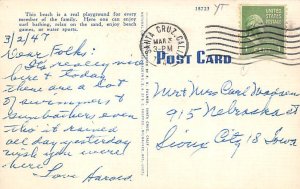 This beach is a real playground for every
member of the family. Here one can enjoy
surf bathing, relax on the sand, enjoy beach
games, or water sports.
18723
3/2/4
Dear Folks:
It's really nice
here & today
there are a lot
of swimmers &
sunbathers even
tho it rained
all day yesterday
wish you were
here
Love Harold.
SANTA CRUZ, CALIF.
MAR 3
3-PM
POST CARD
Mr & Mrs Carl
915 Nebraska St
Sioux City 18 Iowa